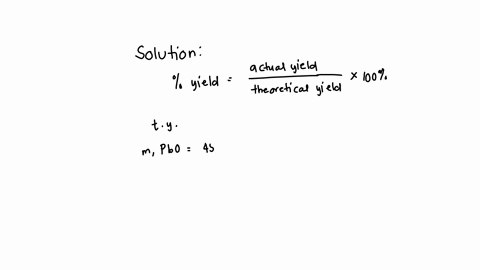 Solution:
% yield = actual yield / theoretical yield × 100%
t.y.
m, PbO = 45